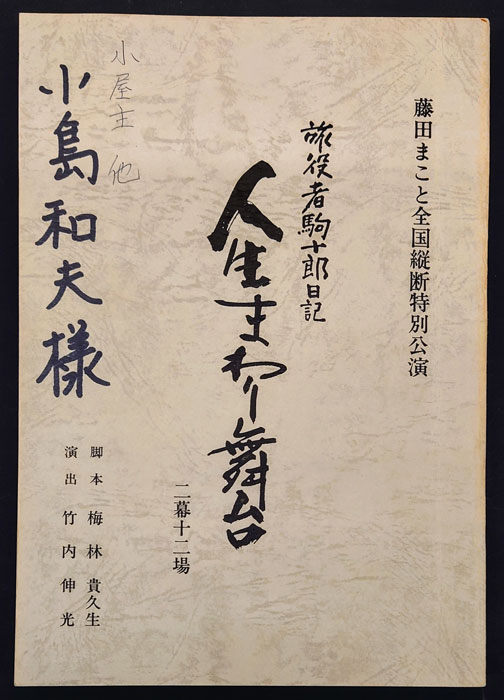 藤田まこと全国縦断特別公演
旅役者駒十郎日記
人生まわり舞台
二幕十二場
脚本 梅林貴久生
演出 竹内伸光
小屋主 他
小島和夫様